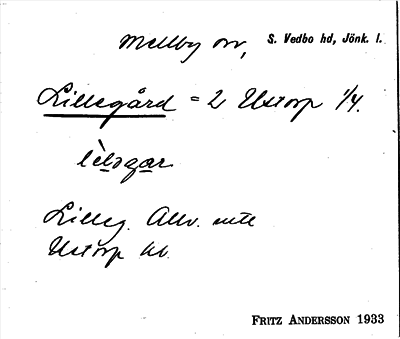 Mellby sn, S. Vedbo hd, Jönk. l.
Lillegård = 2 Ustorp 1/4.
lèləgar
Lilleg. Allv. mtl
Ustorp kb.
FRITZ ANDERSSON 1933